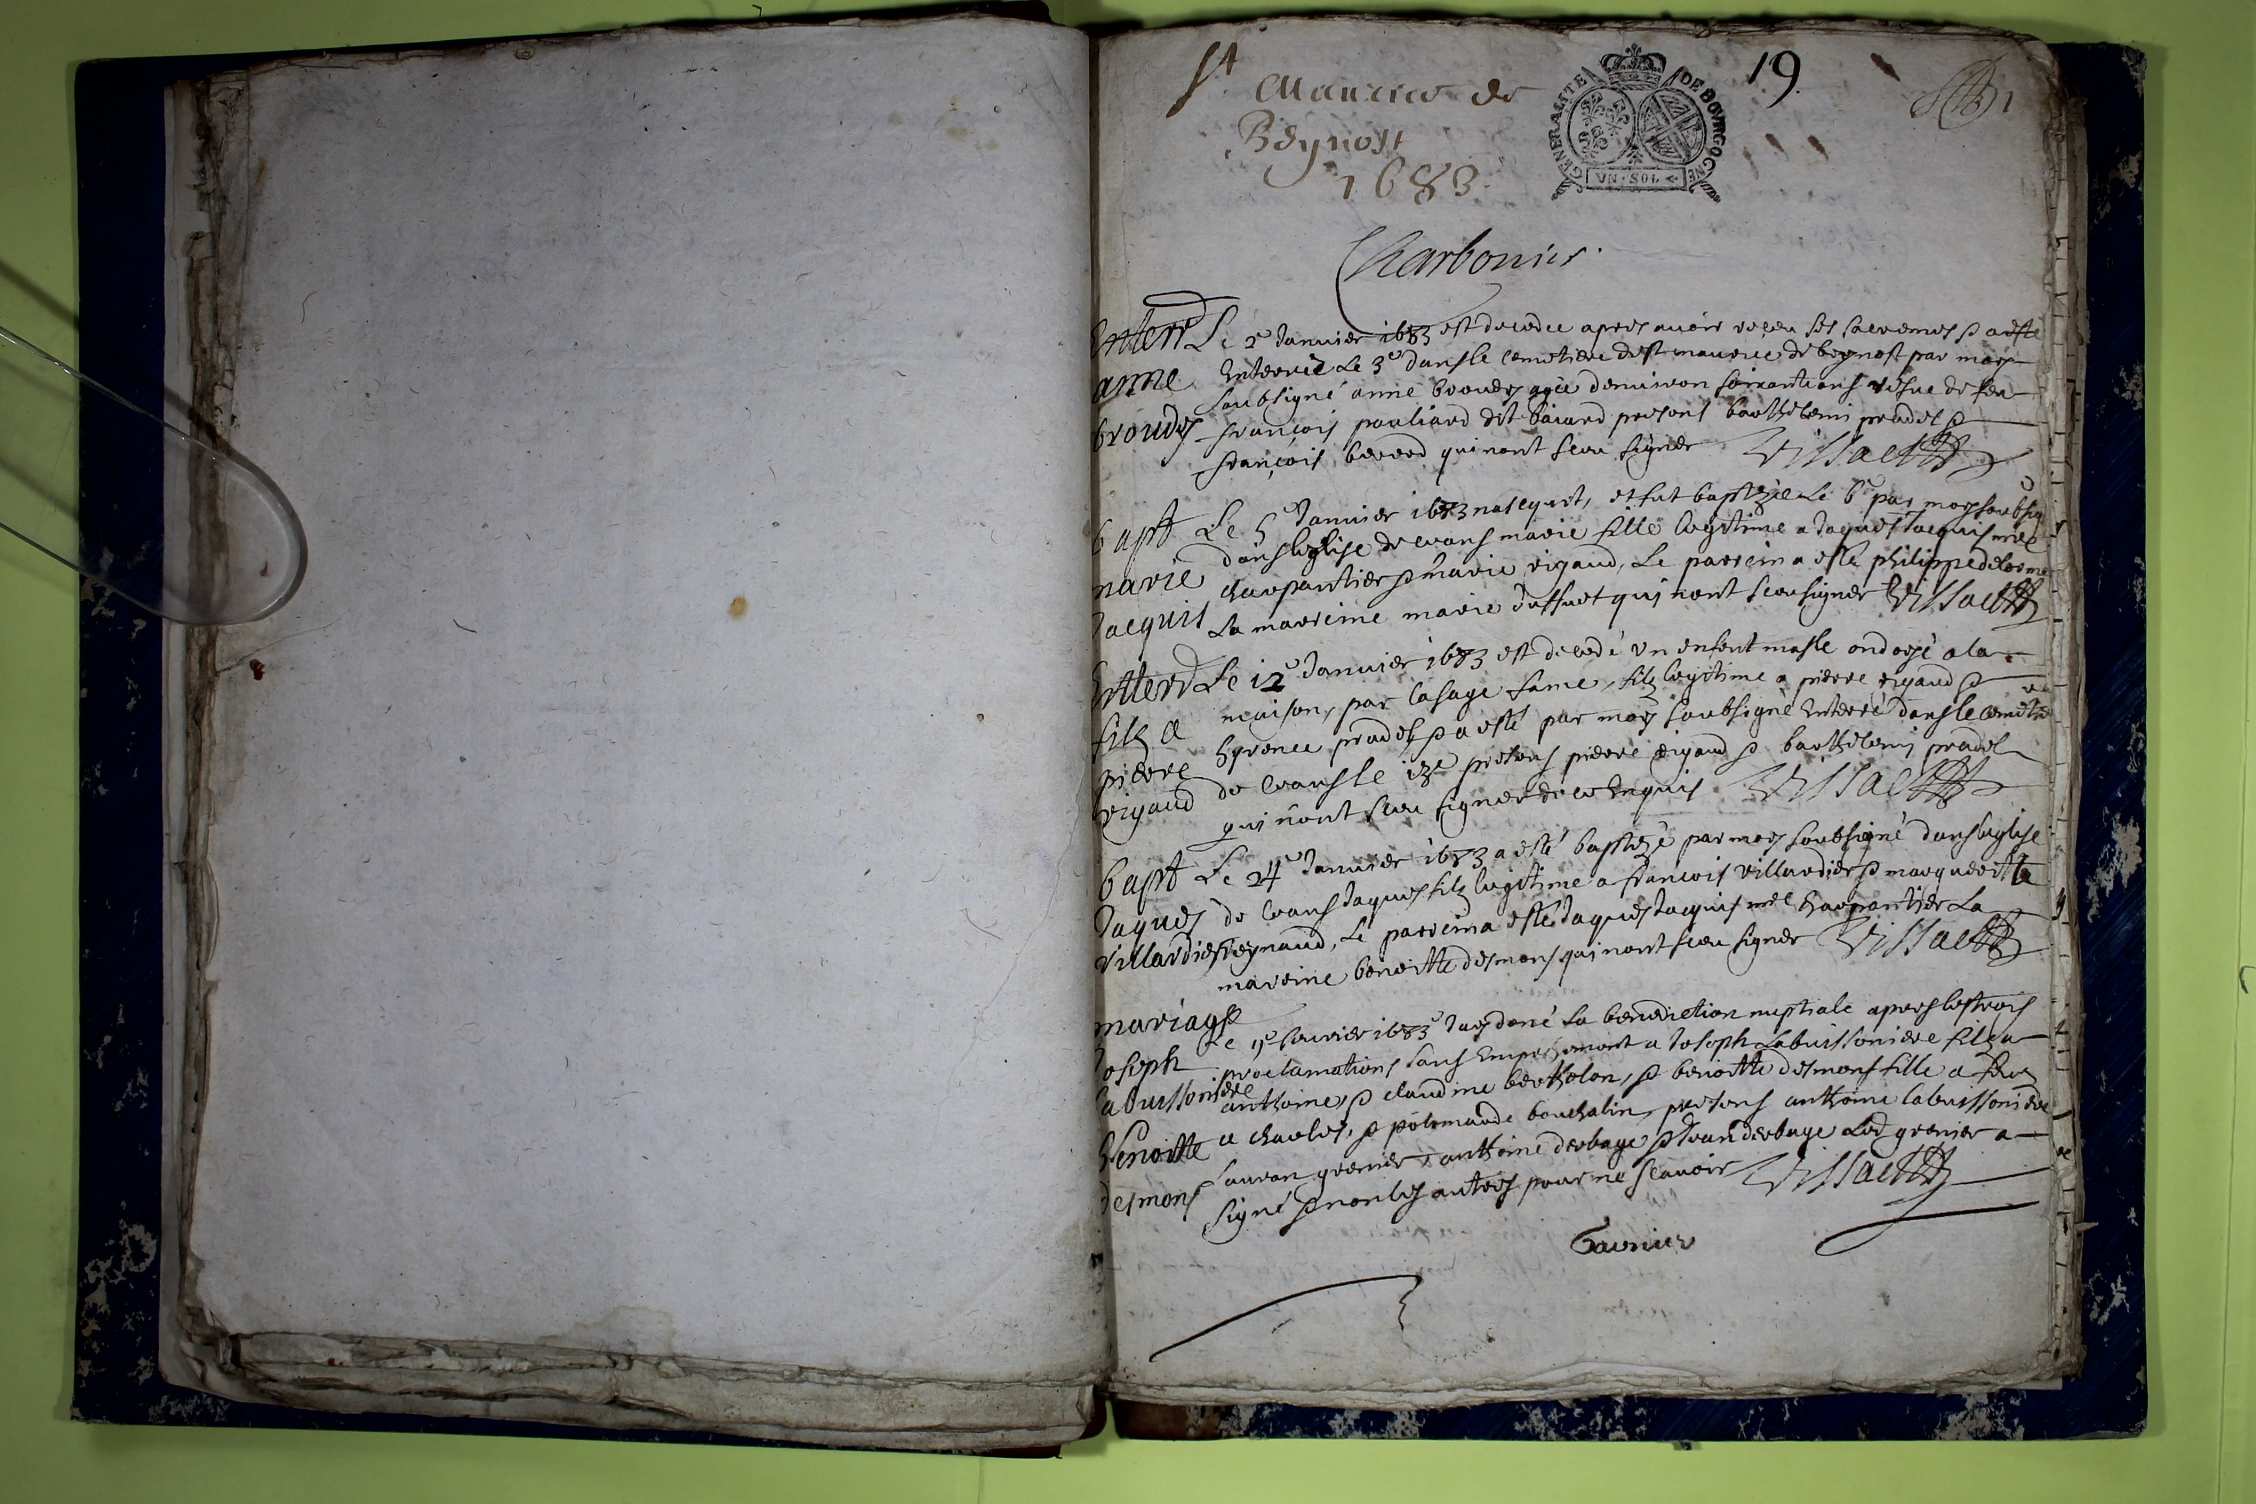 St Maurice de
Beynost
1683
19
GENERALITE DE BOURGOGNE
UN · SOL
1
Charbonier
Enterr
anne
broudes
Le 2e Januier 1683 est decedee apres auoir receu ses sacremes & a este
Enterrée Le 3e dans le cemetiere de st maurice de beynost par moy
soubsigné anne broudes agée denuiron soixante ans vefue de feu
françois pouliard dit baiard presens barthelemi pradel &
françois bererd qui nont sceu signer Vissac
bapt
marie
Jacquis
Le 5e Januier 1683 nasequit, et fut baptizée Le 6e par moy soubsig
dans leglise de crans marie fille legitime a Jaques Jacquis mre
charpantier & marie rigaud, Le parrein a esté philippe delorme
La marreine marie dussuet qui nont sceu signer Vissac
Enterr
filz a
pierre
rigaud
Le 12e Januier 1683 est decedé vn enfent masle ondoyé a la
maison, par la sage fame, filz legitime a pierre rigaud &
hyronee pradel & a esté par moy soubsigné Enterré dans le cemetiere
de crans le 13e presens pierre rigaud & barthelemi pradel
qui nont sceu signer de ce Enquis Vissac
bapt
Jaques
Villardier
Le 24e Januier 1683 a esté baptizé par moy soubsigné dans leglise
de crans Jaques filz legitime a francois Villardier & margueritte
reynaud, Le parrein a esté Jaques Jacquis mre charpantier La
mareine benoitte desmons qui nont sceu signer Vissac
mariage
Joseph
Labuissoniere
benoitte
desmons
Le feurier 1683 Jay doné La benediction nuptiale apres les trois
proclamations sans Empechement a Joseph Labuissoniere filz a
anthoine, & claudine bertholon, & benoitte desmons fille a feu
a charles, & polemande bouchalin, presens anthoine labuissoniere
grenier anthoine derbage & Jean derbage Led grenier a
signé & non les autres pour ne scauoir Vissac
Garnier